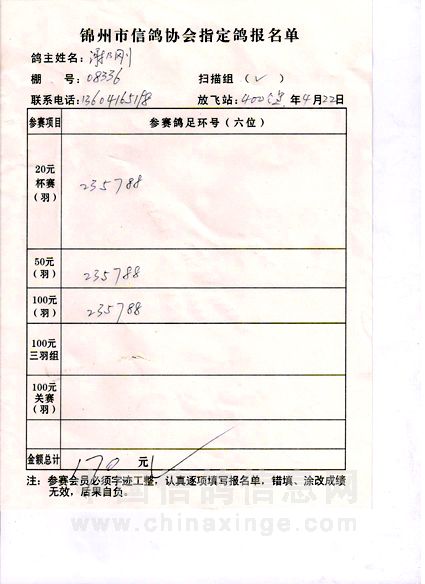 锦州市信鸽协会指定鸽报名单
鸽主姓名:
棚 号: 08336 扫描组(✓)
联系电话: 放飞站: 400 年4月22日
参赛项目 参赛鸽足环号(六位)
20元
杯赛
(羽) 235788
50元
(羽) 235788
100元
(羽) 235788
100元
三羽组
100元
关赛
(羽)
金额总计 170 元
注: 参赛会员必须字迹工整, 认真逐项填写报名单, 错填、涂改成绩
无效, 后果自负。
中国信鸽信息网
www.chinaxinge.com